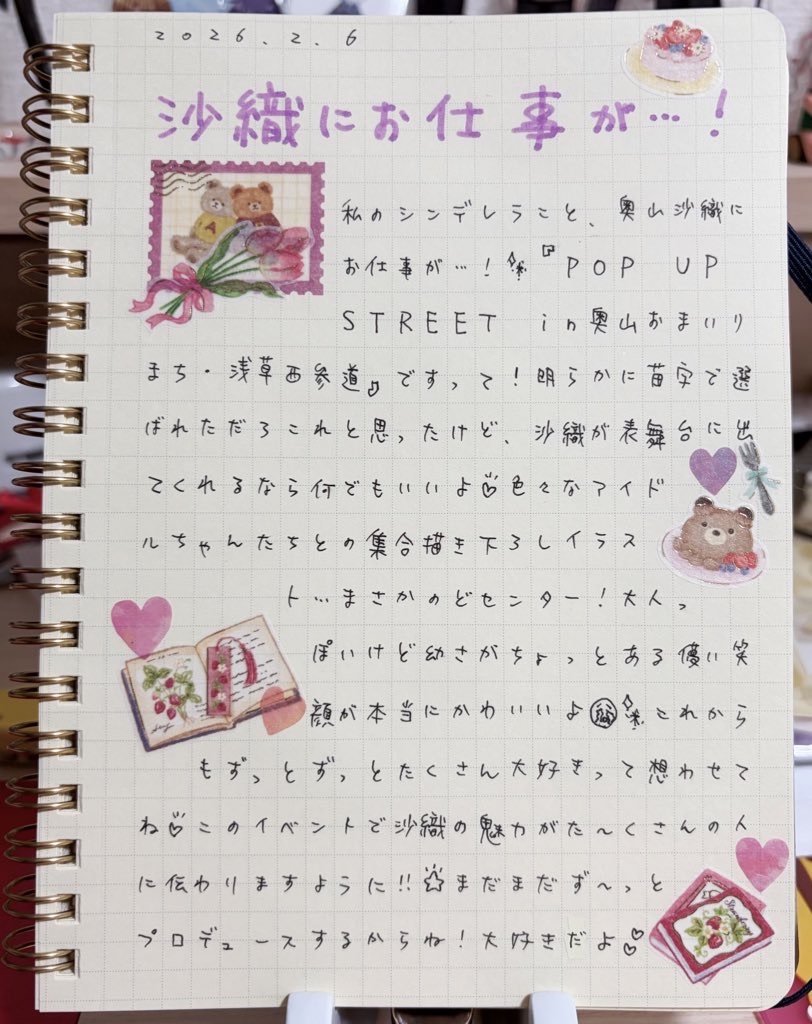 2026.2.6
沙織にお仕事が…!
私のシンデレラこと、奥山沙織に
お仕事が…!『POP UP
STREET in奥山おまいり
まち・浅草西参道』ですって!明らかに苗字で選
ばれただろこれと思ったけど、沙織が表舞台に出
てくれるなら何でもいいよ♡色々なアイド
ルちゃんたちとの集合描き下ろしイラス
ト…まさかのどセンター!大人っ
ぽいけど幼さがちょっとある優い笑
顔が本当にかわいいよ これから
もずっとずっとたくさん大好きって想わせて
ね♡このイベントで沙織の魅力がた〜くさんの人
に伝わりますように!!☆まだまだず〜っと
プロデュースするからね!大好きだよ♡♡
A